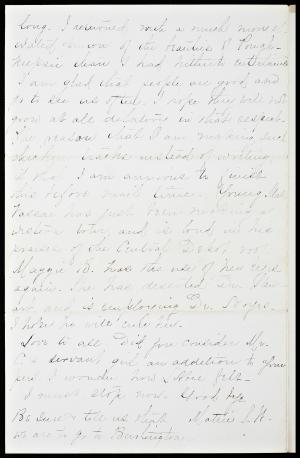 long. I returned with a much more ex-
alted opinion of the beauties of Pough-
keepsie than I had hitherto entertained
I am glad that people are good and
go to see us often. I hope they will not
grow at all delatory in that respect.
The reason that I am making such
chicken tracks instead of writing,
is that I am anxious to finish
this before mail time. Young Mr.
Vassar has just been making a
western tour, and is loud in his
praises of the Central Depot
Maggie B. has the use of her eyes
again. She has deserted Dr.
and is employing Dr.
I hope he will cure her.
Love to all. Did you consider Mr.
C's servant girl an addition to your
I wonder how felt.
I must stop now. Good bye
Be sure & tell us Mattie S. H.
we are to go to Burlington.